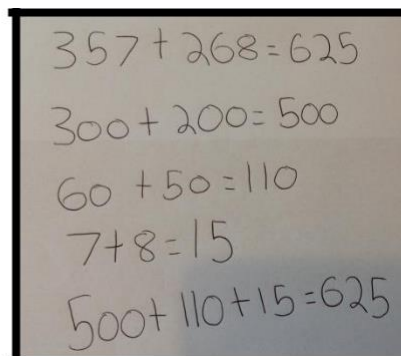 357 + 268 = 625
300 + 200 = 500
60 + 50 = 110
7 + 8 = 15
500 + 110 + 15 = 625